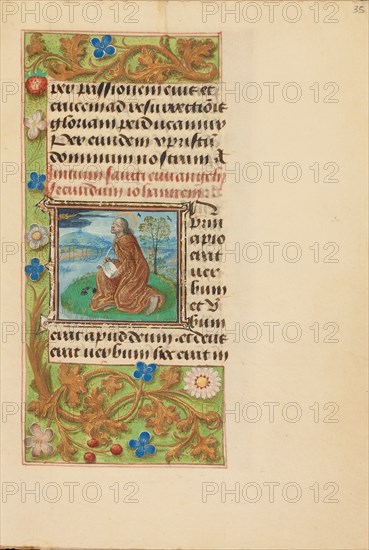 35
per passionem eius et
crucem ad resurrectionis
gloriam perducamur
Per eundem xpristum
dominum nostrum A
Initium sancti euuangelij
secundum iohannem
In
prin
cipio
erat
uer
bum
et V
bum
erat apud deum et deus
erat uerbum hoc erat in
PHOTO 12 PHOTO 12 PHOTO 12
PHOTO 12 PHOTO 12 PHOTO 12
PHOTO 12 PHOTO 12 PHOTO 12
PHOTO 12 PHOTO 12 PHOTO 12
PHOTO 12 PHOTO 12 PHOTO 12
PHOTO 12 PHOTO 12 PHOTO 12